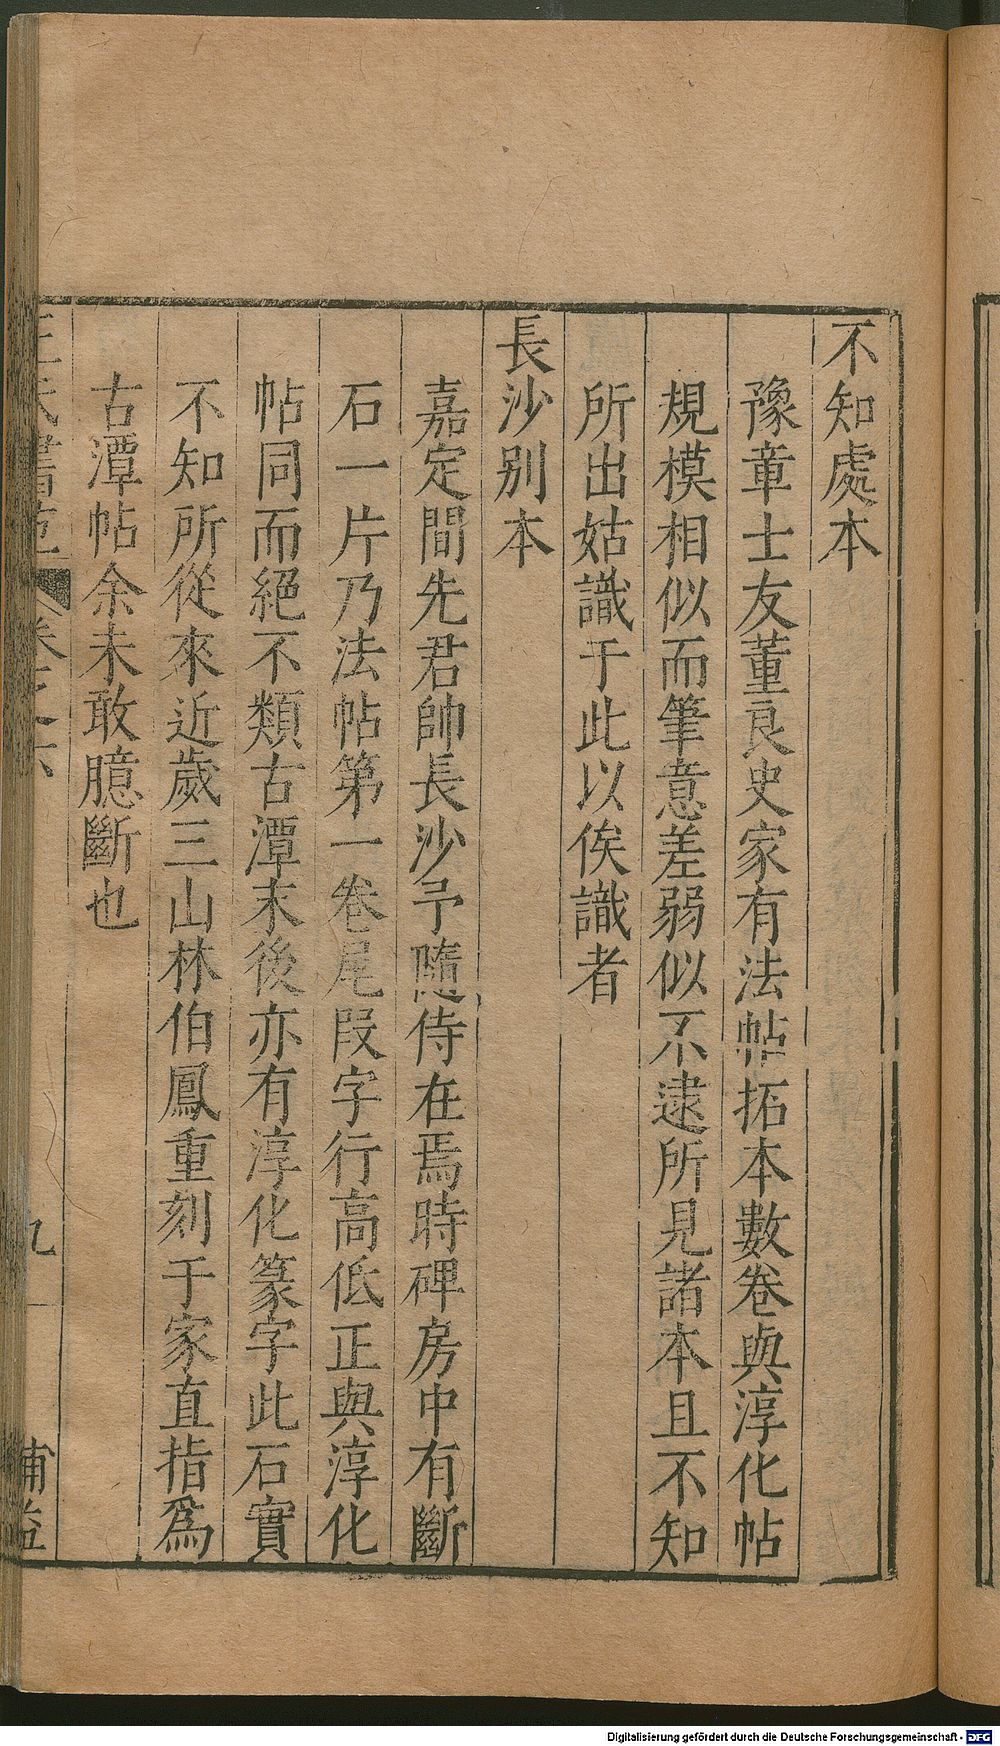 不知處本
豫章士友董良史家有法帖拓本數卷與淳化帖
規模相似而筆意差弱似不逮所見諸本且不知
所出姑識于此以俟識者
長沙别本
嘉定間先君帥長沙予隨侍在焉時碑房中有斷
石一片乃法帖第一卷尾段字行高低正與淳化
帖同而絕不類古潭末後亦有淳化篆字此石實
不知所從來近歲三山林伯鳳重刻于家直指爲
古潭帖余未敢臆斷也
王氏書苑 卷之六 九
補益
Digitalisierung gefördert durch die Deutsche Forschungsgemeinschaft - DFG